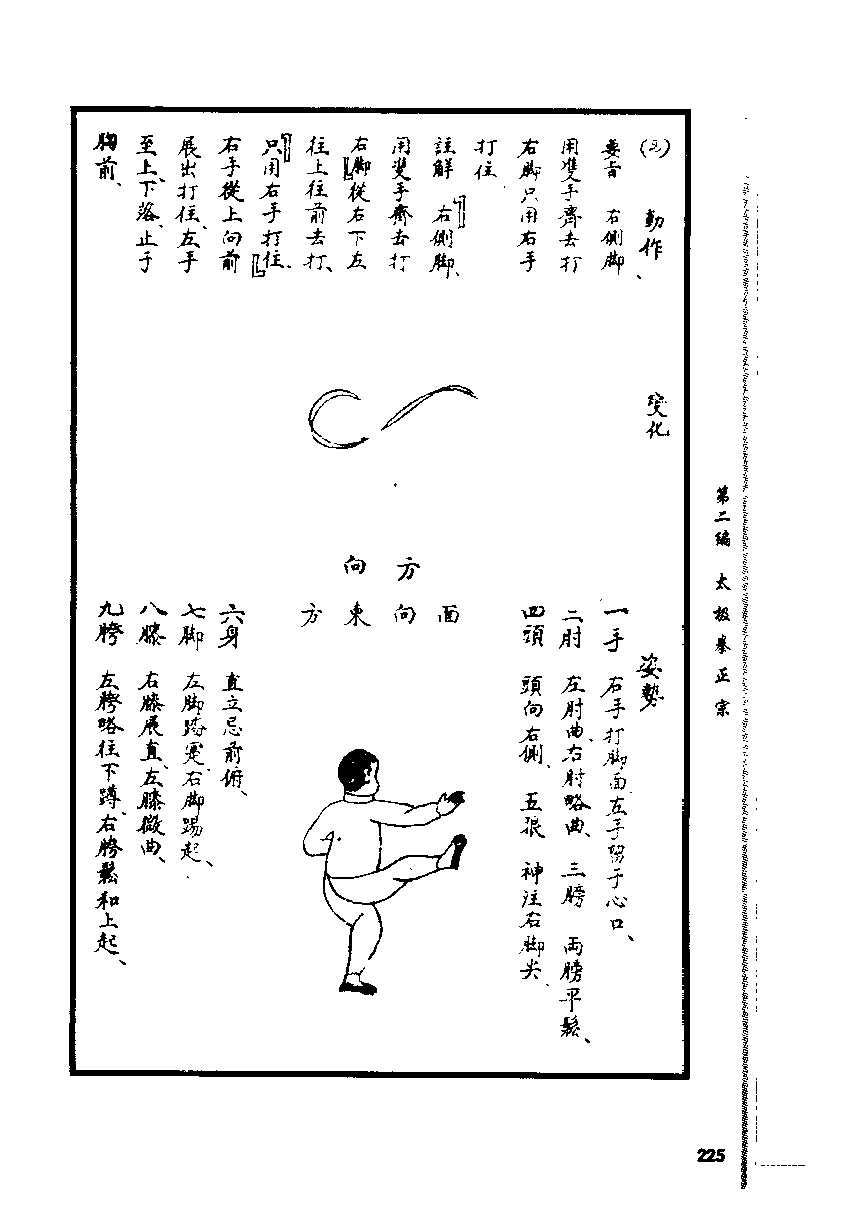 動作、
要旨 右側脚
用雙手齊去打
右脚只用右手
打住
註解 右側脚、
用雙手齊去打
右脚從右下左
往上往前去打、
只用右手打住.
右手從上向前
展出打住、左手
至上、下落、止于
胸前、
變化
方向
面向東方
姿勢
一手 右手打脚面、左手留于心口、
二肘 左肘曲、右肘略曲、三膀 両膀平鬆、
四頭 頭向右側、五眼 神注右脚尖、
六身 直立忌前俯、
七脚 左脚踏寔、右脚踢起、
八膝 右膝展直、左膝微曲、
九胯 左胯略往下蹲、右胯鬆和上起、
第二編 太极拳正宗
225